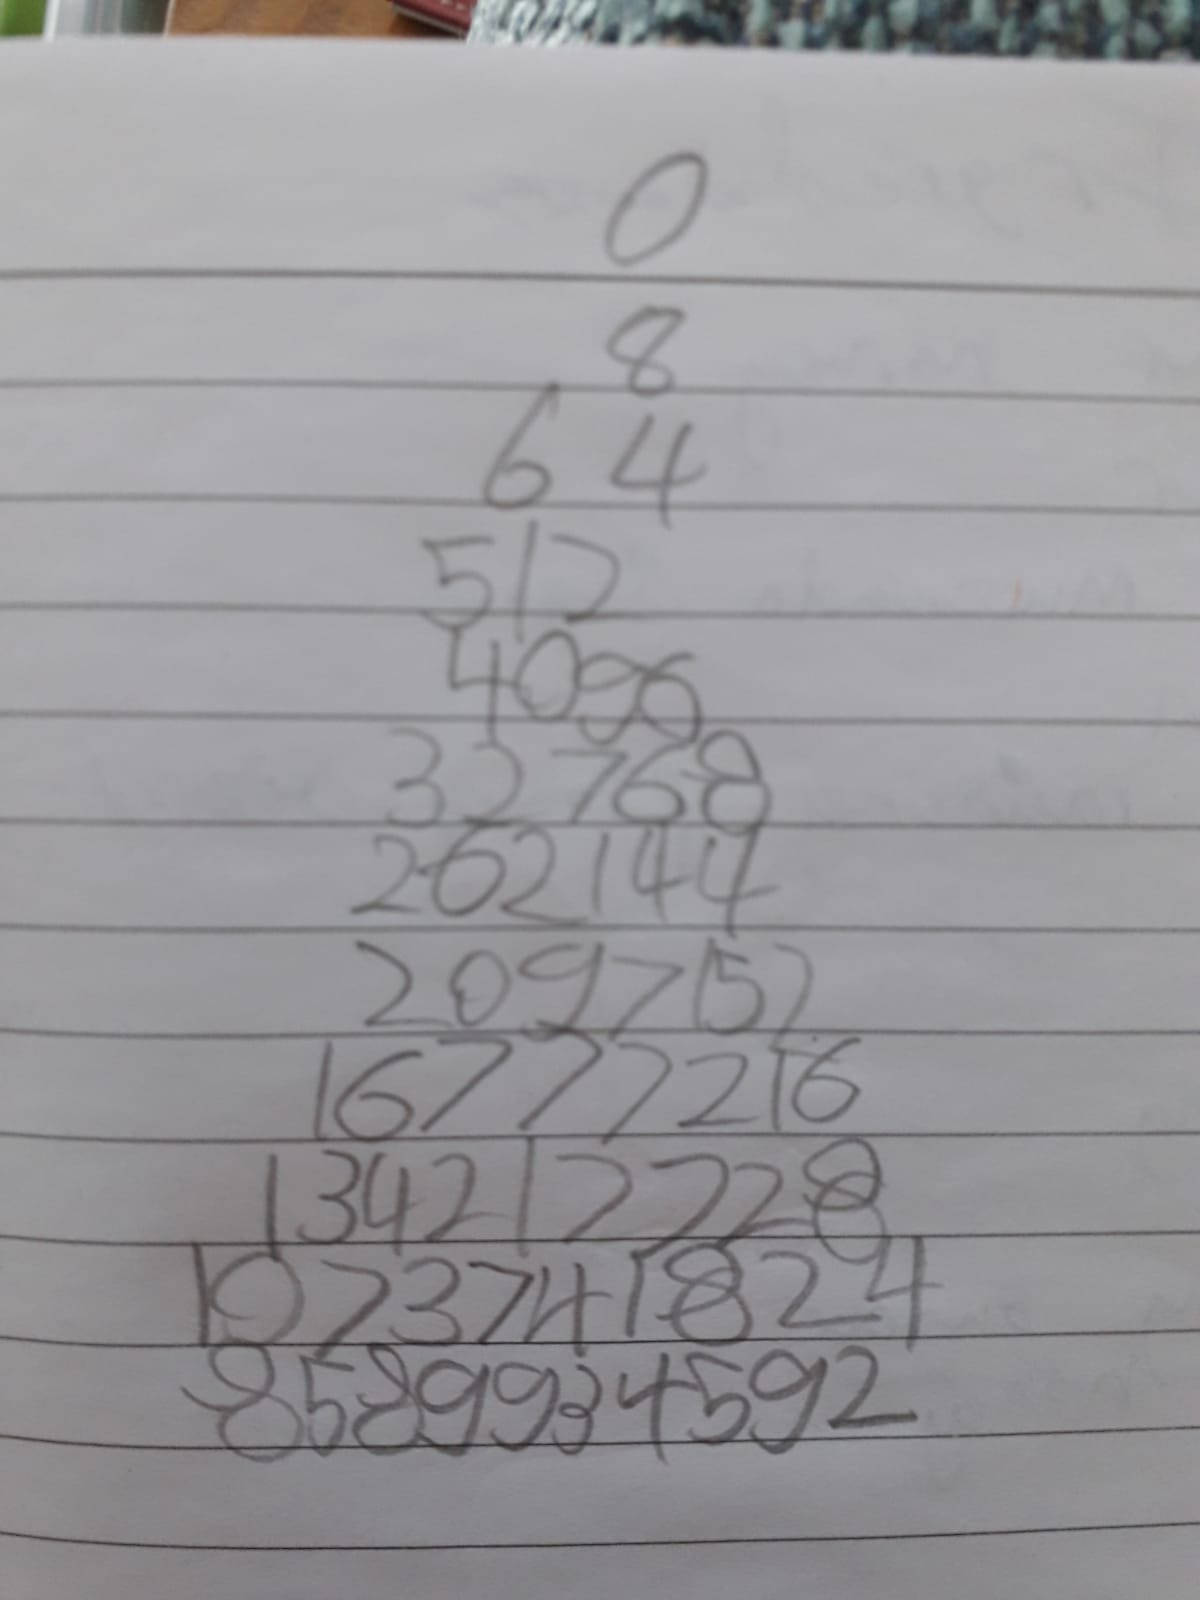 0
8
64
512
4096
32768
262144
2097152
16777216
134217728
1073741824
8589934592